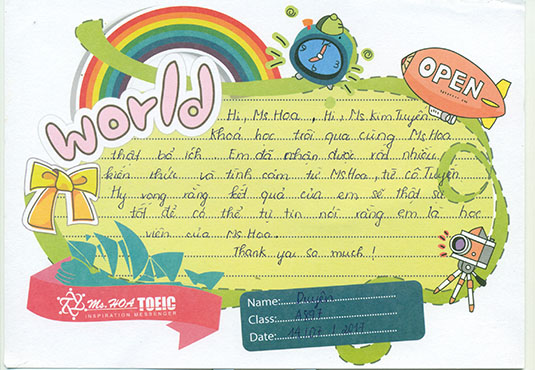 world
OPEN
Hi, Ms.Hoa , Hi, Ms Kim Tuyền
Khoá học trôi qua cùng Ms Hoa
thật bổ ích . Em đã nhận được rất nhiều
kiến thức và tình cảm từ Ms.Hoa, từ cô Tuyền
Hy vọng rằng kết quả của em sẽ thật sự
tốt để có thể tự tin nói rằng em là học
viên của Ms Hoa
Thank you so much !
Ms. HOA TOEIC
INSPIRATION MESSENGER
Name: Duyên
Class:
Date: 14/07/2017